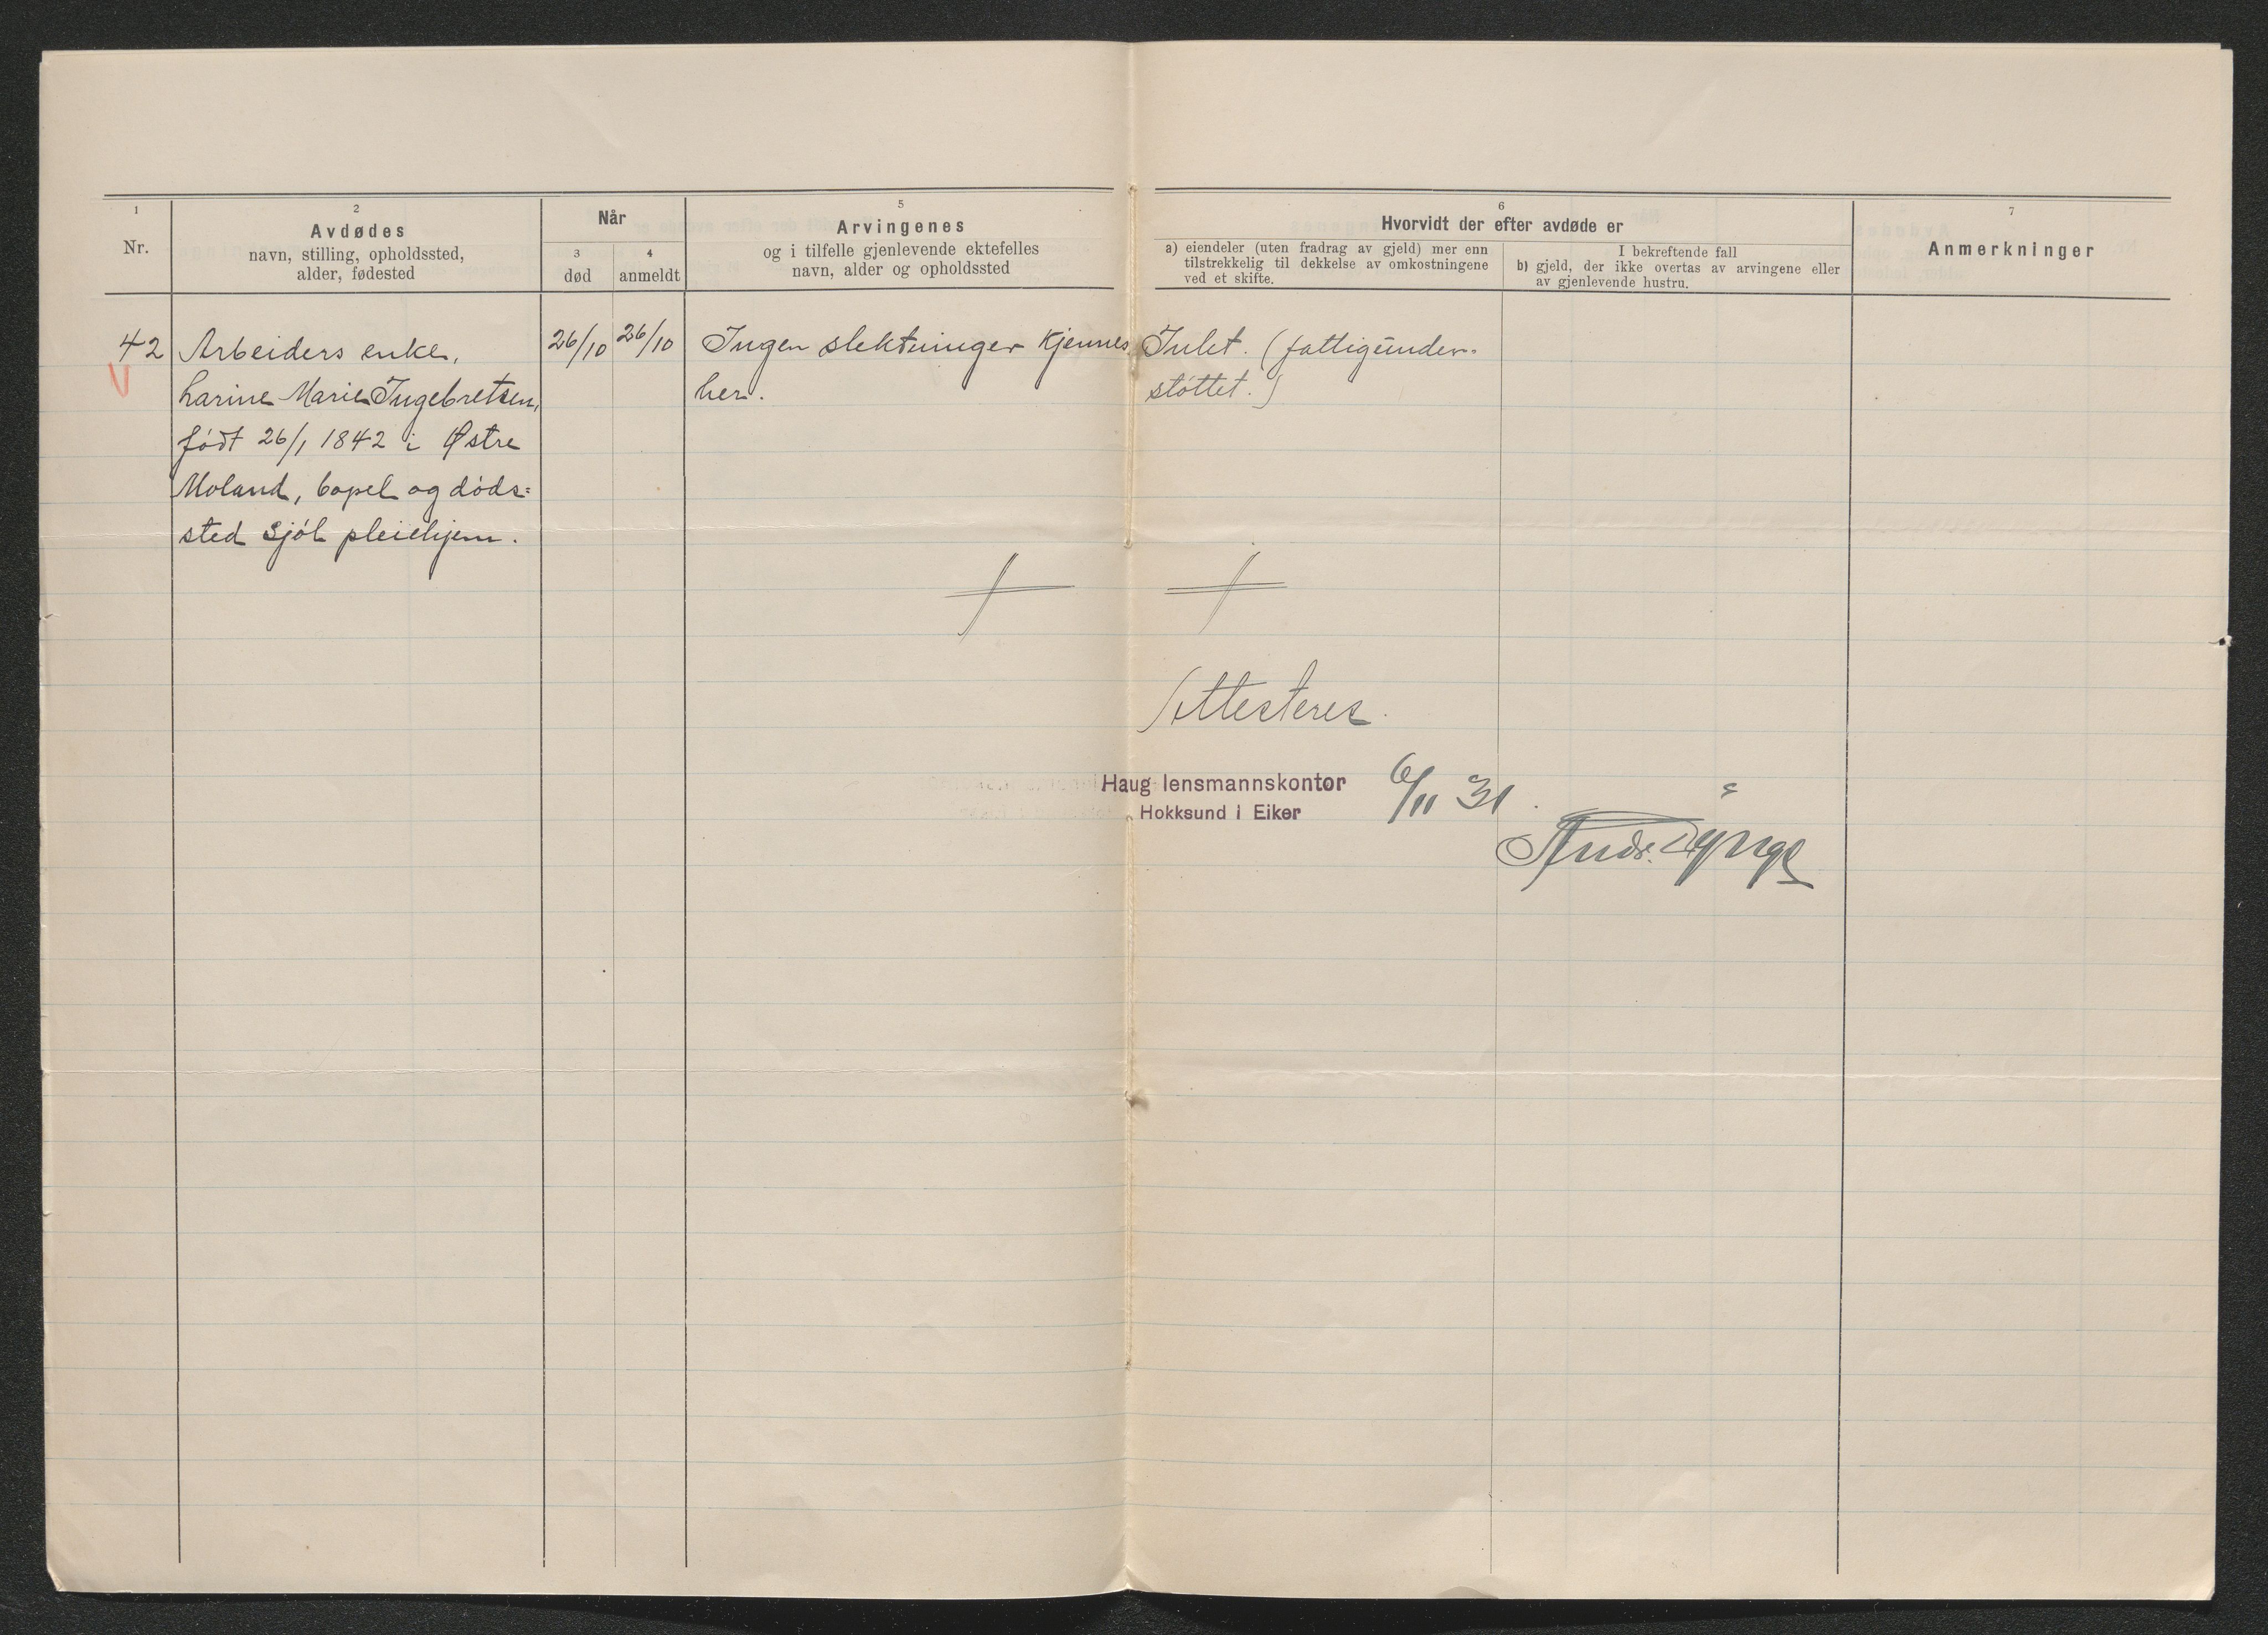 1
Nr.
2
Avdødes
navn, stilling, opholdssted,
alder, fødested
Når
3
død
4
anmeldt
5
Arvingenes
og i tilfelle gjenlevende ektefelles
navn, alder og opholdssted
6
Hvorvidt der efter avdøde er
a) eiendeler (uten fradrag av gjeld) mer enn
tilstrekkelig til dekkelse av omkostningene
ved et skifte.
I bekreftende fall
b) gjeld, der ikke overtas av arvingene eller
av gjenlevende hustru.
7
Anmerkninger
42
Arbeiders enke,
Larine Marie Ingebretsen,
født 26/1 1842 i Østre
Moland, bopel og døds=
sted Sjøl pleiehjem.
26/10
26/10
Ingen slektninger kjennes
her.
Intet. (fattigunder-
støttet.)
Attesteres.
Haug lensmannskontor
Hokksund i Eiker
6/11 31.
Andr.